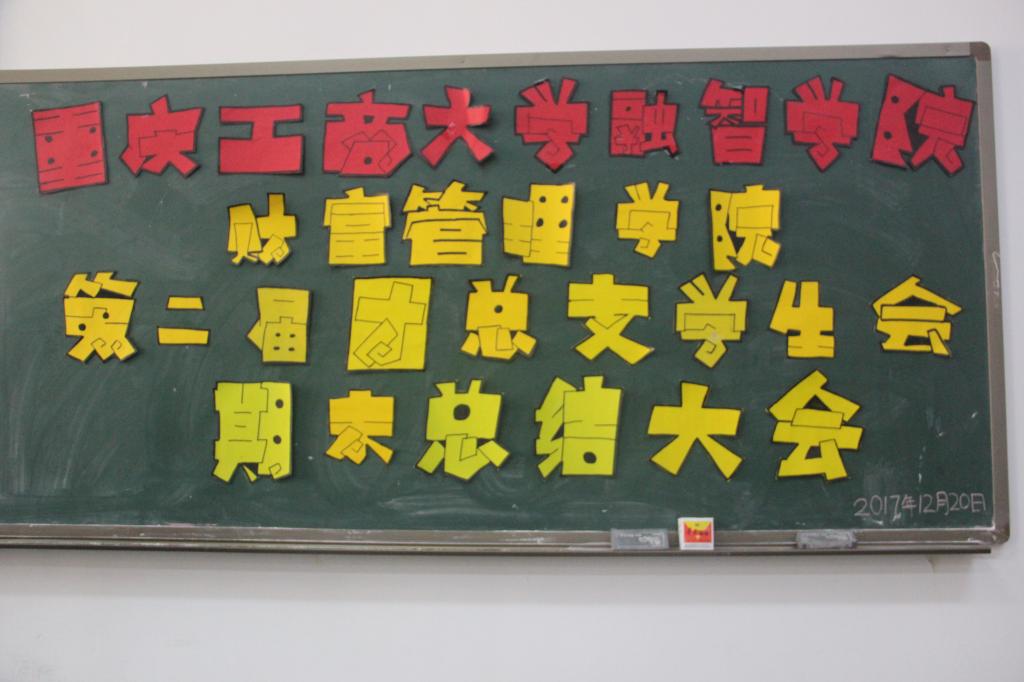 重庆工商大学融智学院
财富管理学院
第二届团总支学生会
期末总结大会
2017年12月20日